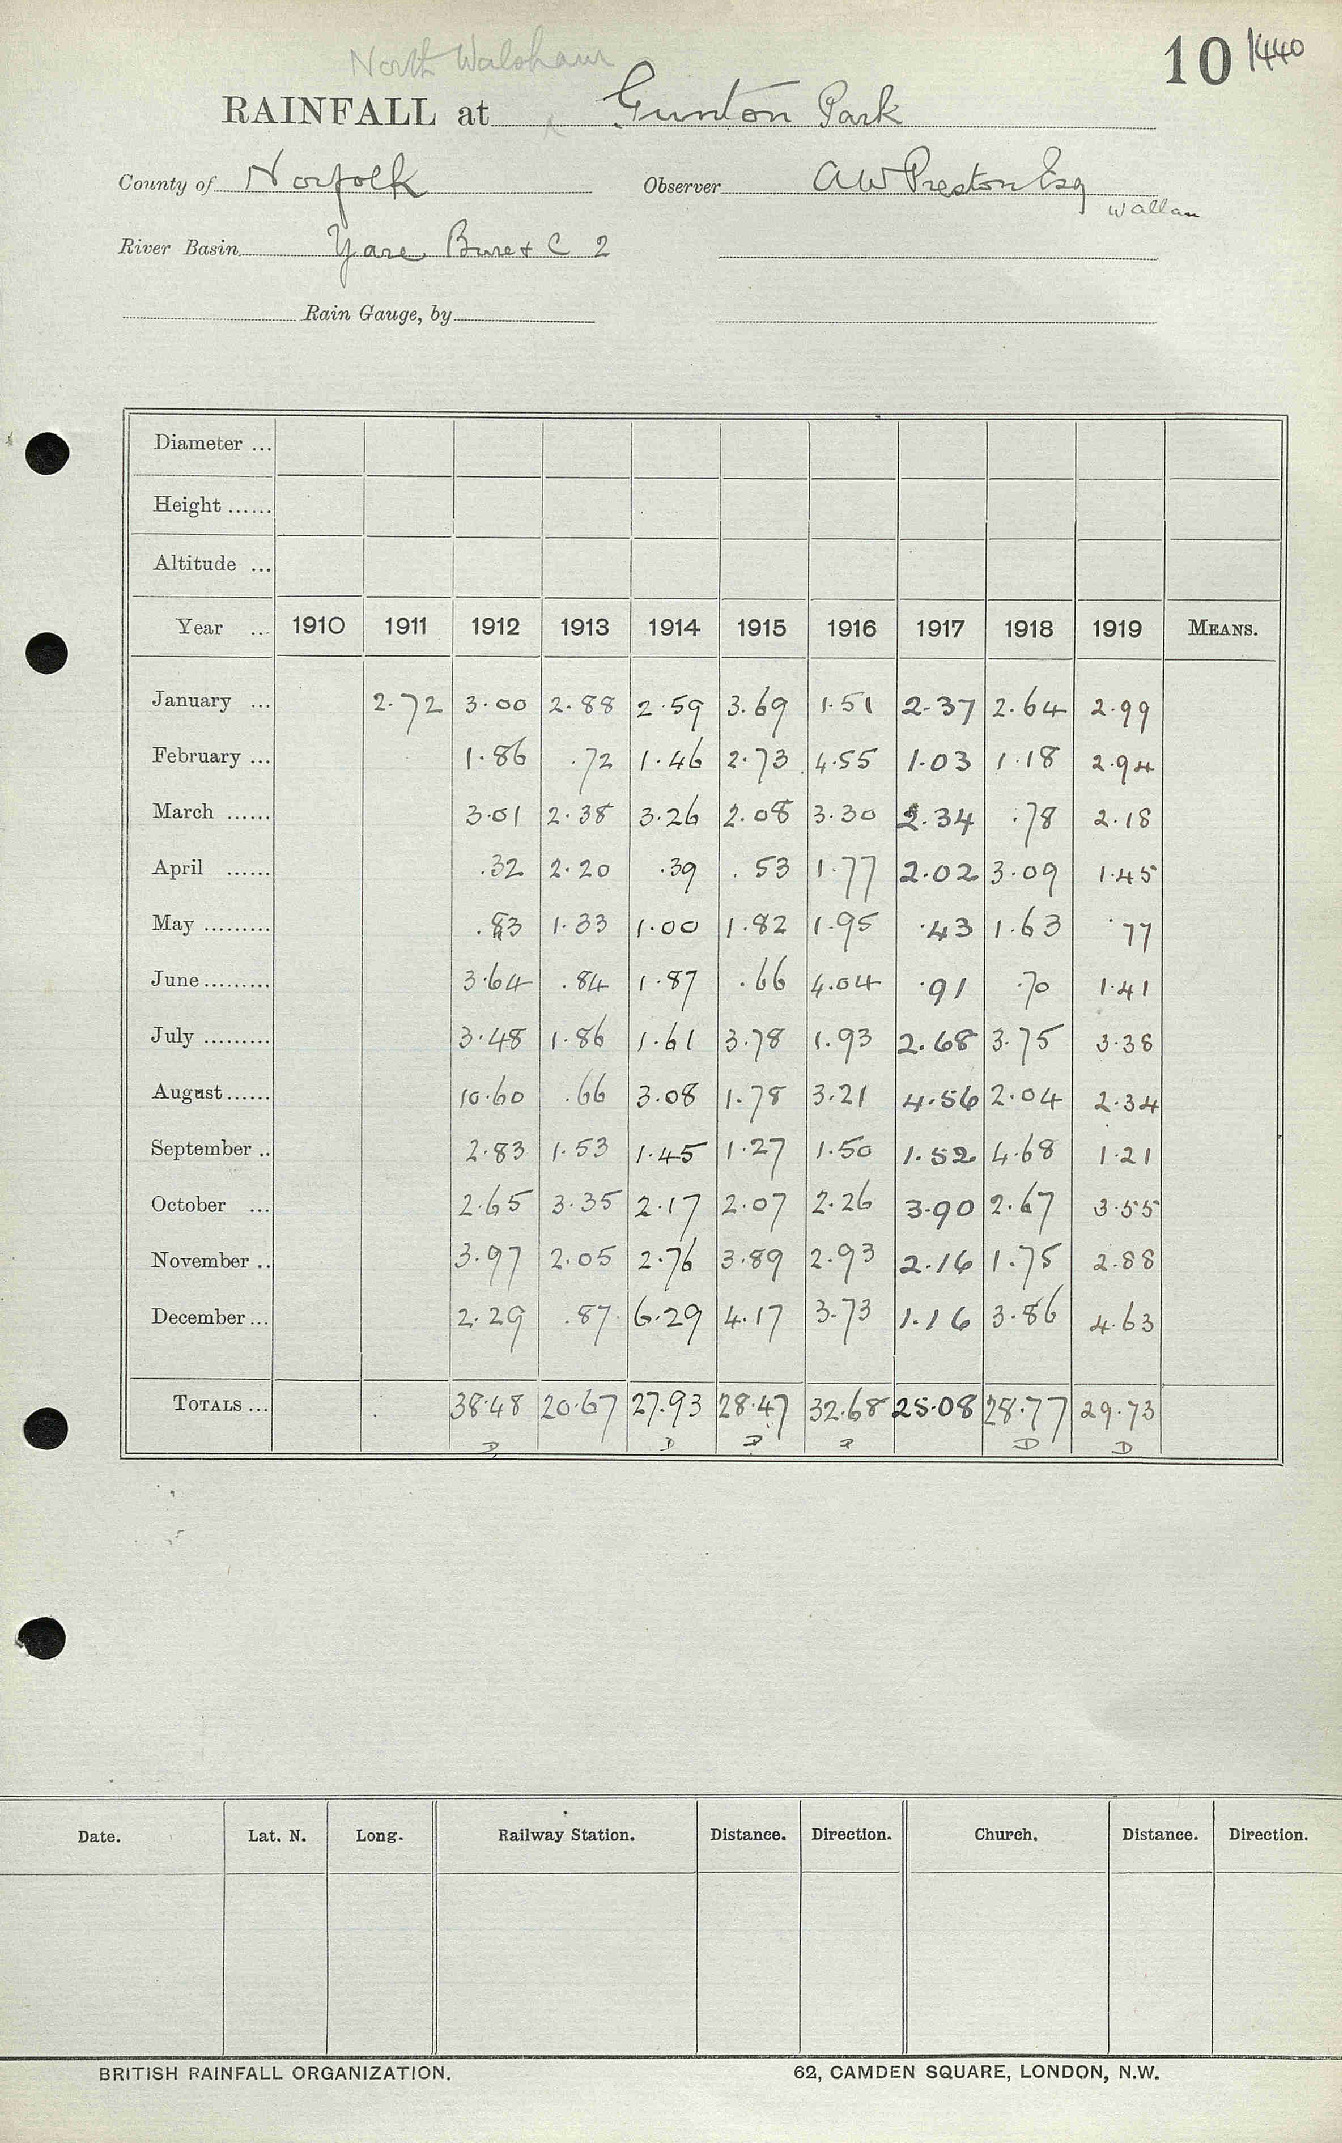 North Walsham
10 1440
RAINFALL at Gunton Park
County of Norfolk Observer A W Preston Esq
River Basin Yare Bure & C 2
Rain Gauge, by
Diameter ...
Height ......
Altitude ...
Year ... 1910 1911 1912 1913 1914 1915 1916 1917 1918 1919 MEANS.
January ... 2.72 3.00 2.88 2.59 3.69 1.51 2.37 2.64 2.99
February ... 1.86 .72 1.46 2.73 4.55 1.03 1.18 2.94
March ...... 3.01 2.38 3.26 2.08 3.30 2.34 .78 2.18
April ...... .32 2.20 .39 .53 1.77 2.02 3.09 1.45
May ......... .83 1.33 1.00 1.82 1.95 .43 1.63 .77
June ......... 3.64 .84 1.87 .66 4.04 .91 .70 1.41
July ......... 3.48 1.86 1.61 3.78 1.93 2.68 3.75 3.38
August ...... 10.60 .66 3.08 1.78 3.21 4.56 2.04 2.34
September .. 2.83 1.53 1.45 1.27 1.50 1.52 4.68 1.21
October ... 2.65 3.35 2.17 2.07 2.26 3.90 2.67 3.55
November .. 3.97 2.05 2.76 3.89 2.93 2.16 1.75 2.88
December ... 2.29 .87 6.29 4.17 3.73 1.16 3.86 4.63
TOTALS ... 38.48 20.67 27.93 28.47 32.68 25.08 28.77 29.73
D D D D D D
Date. Lat. N. Long. Railway Station. Distance. Direction. Church. Distance. Direction.
BRITISH RAINFALL ORGANIZATION. 62, CAMDEN SQUARE, LONDON, N.W.